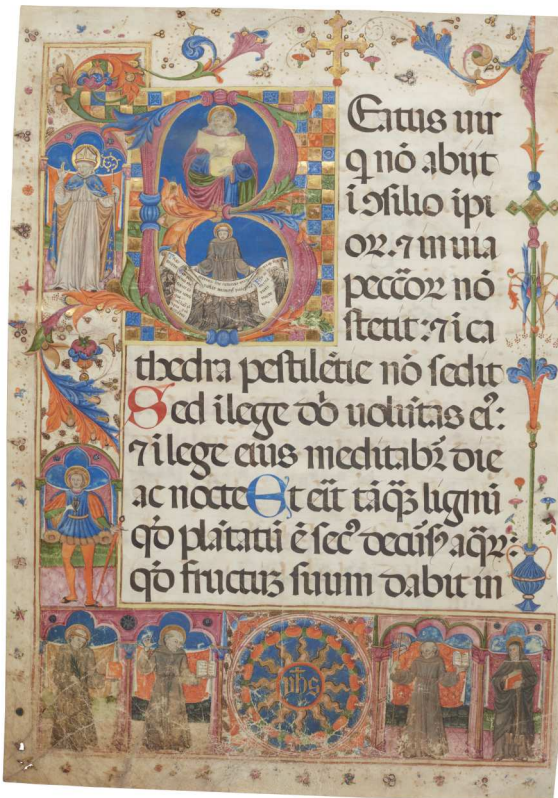 Eatus uir
q nō abijt
i ɔsilio ipi
oꝝ. ⁊ in uia
peccōꝝ nō
stetit: ⁊ i ca
thedra pestilētie nō sedit
Sed i lege dō uolūtas ei⁹:
⁊ i lege eius meditabr̄ die
ac nocte Et eīt tāqꝫ lignū
qō plātatū ē sec⁹ decurs⁹ aq̄ꝝ:
qō fructuꝫ suum dabit in
yhs